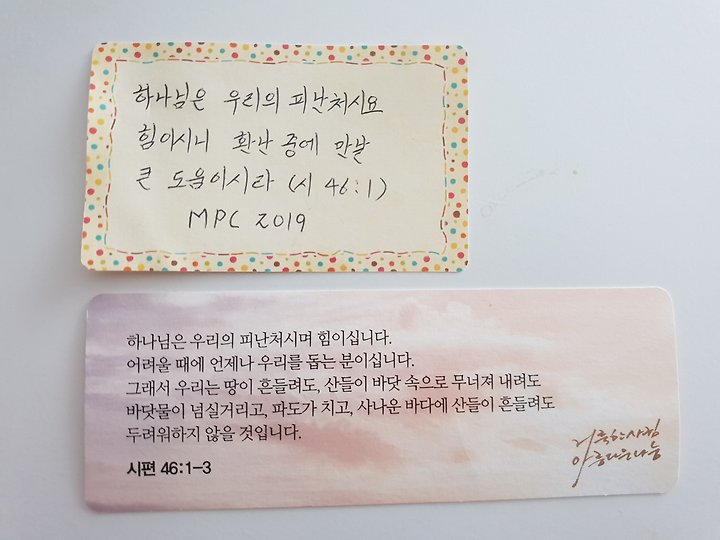 하나님은 우리의 피난처시요
힘이시니 환난 중에 만날
큰 도움이시라 (시 46:1)
MPC 2019
하나님은 우리의 피난처시며 힘이십니다.
어려울 때에 언제나 우리를 돕는 분이십니다.
그래서 우리는 땅이 흔들려도, 산들이 바닷 속으로 무너져 내려도
바닷물이 넘실거리고, 파도가 치고, 사나운 바다에 산들이 흔들려도
두려워하지 않을 것입니다.
시편 46:1-3
거룩한사귐
아름다운나눔